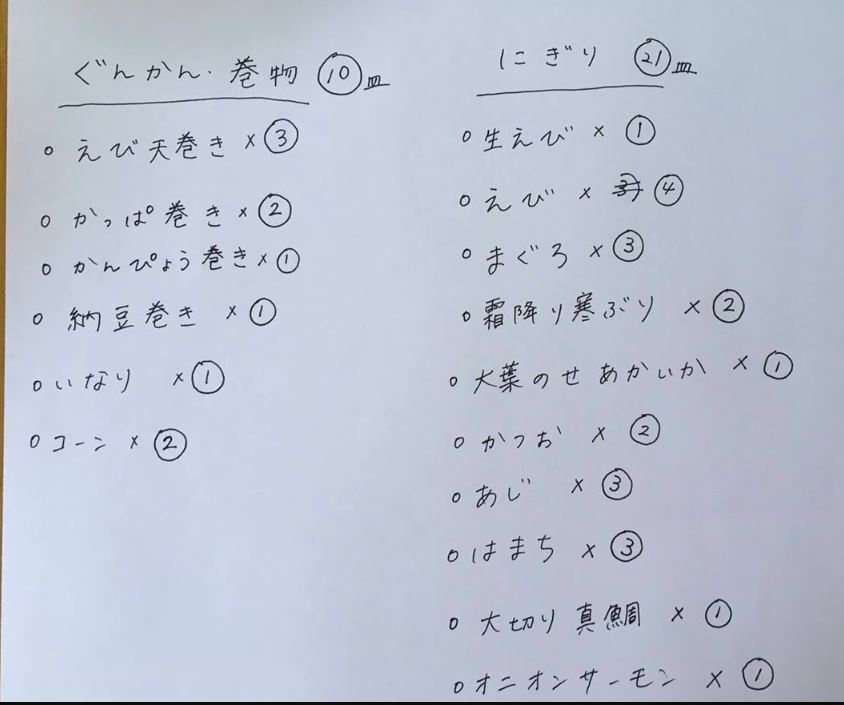 ぐんかん・巻物 ⑩皿
○ えび天巻き × ③
○ かっぱ巻き × ②
○ かんぴょう巻き × ①
○ 納豆巻き × ①
○ いなり × ①
○ コーン × ②
にぎり ㉑皿
○ 生えび × ①
○ えび × ④
○ まぐろ × ③
○ 霜降り寒ぶり × ②
○ 大葉のせあかいか × ①
○ かつお × ②
○ あじ × ③
○ はまち × ③
○ 大切り真鯛 × ①
○ オニオンサーモン × ①